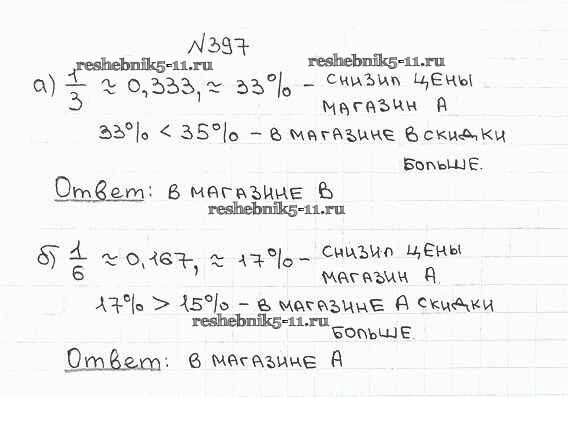 №397
reshebnik5-11.ru reshebnik5-11.ru
а) 1/3 ≈ 0,333, ≈ 33% – снизил цены
магазин А
33% < 35% – в магазине В скидки
больше.
Ответ: в магазине В
reshebnik5-11.ru
б) 1/6 ≈ 0,167, ≈ 17% – снизил цены
магазин А
17% > 15% – в магазине А скидки
reshebnik5-11.ru
больше.
Ответ: в магазине А